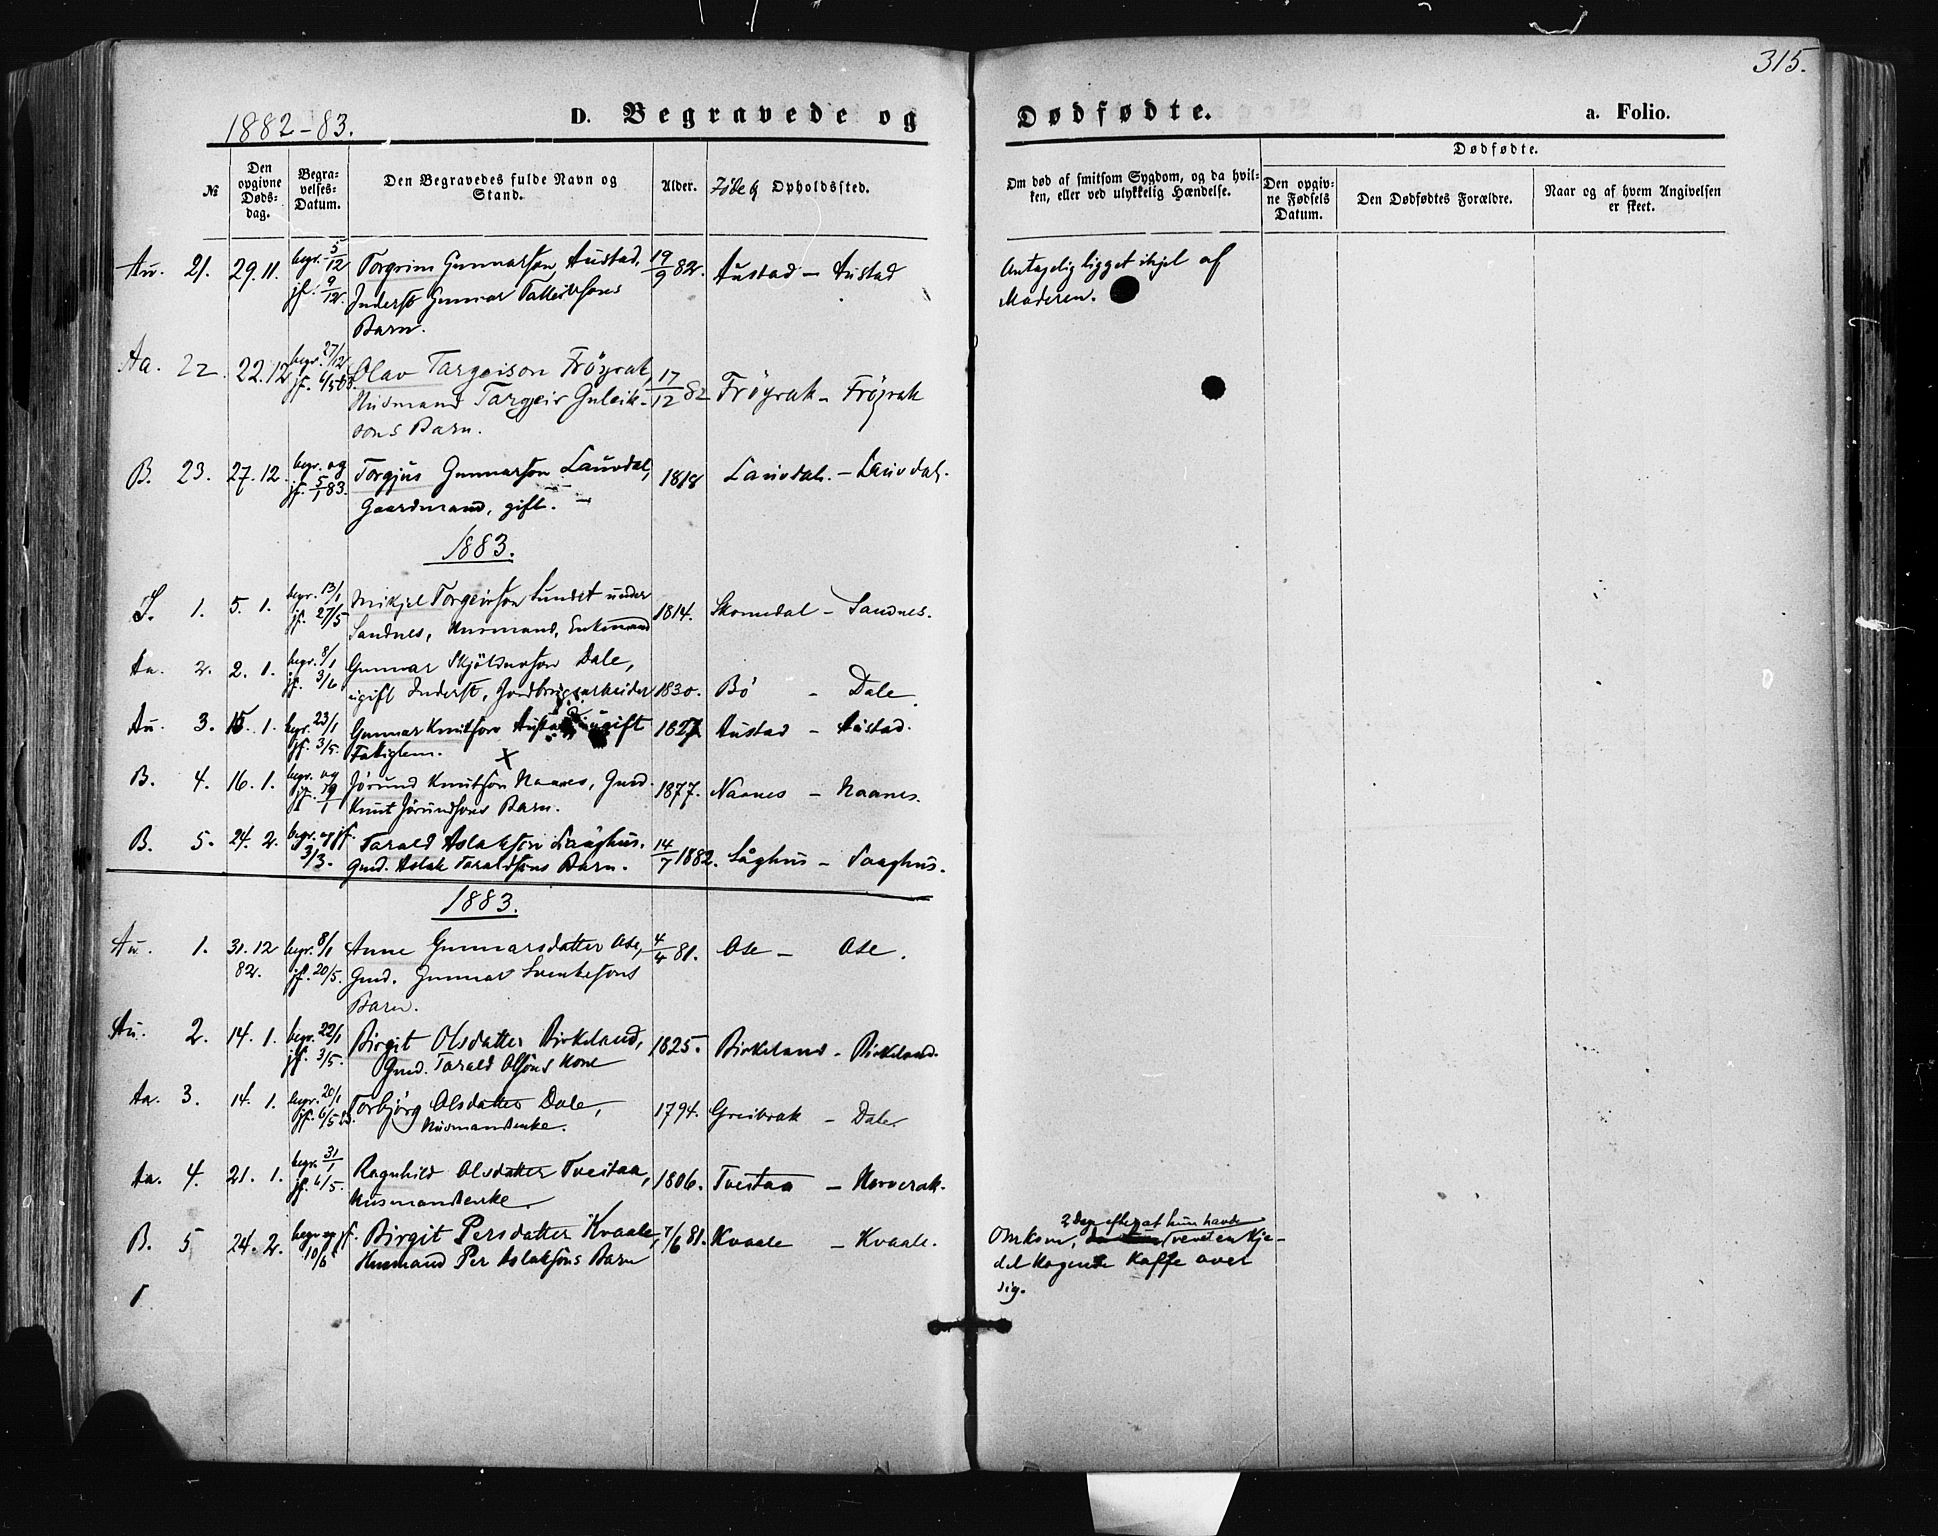 315.
1882-83.
D. Begravede og Dødfødte. a. Folio.
№
Den opgivne Døds-dag.
Begra-velses-Datum.
Den Begravedes fulde Navn og Stand.
Alder.
Føde & Opholdssted.
Om død af smitsom Sygdom, og da hvil-ken, eller ved ulykkelig Hændelse.
Dødfødte.
Den opgiv-ne Fødsels Datum.
Den Dødfødtes Forældre.
Naar og af hvem Angivelsen er skeet.
Au. 21. 29.11. begr. 5/12 Torgrim Gunnarson Austad, 19/9 82. Austad – Austad Antagelig ligget ihjel af
jf. 9/12. Inderst Gunnar Talleivsons Moderen.
Barn.
Aa. 22. 22.12 begr. 27/12 Olav Targeison Frøyrak, 17/12 82 Frøyrak – Frøyrak
jf. 6/5 83. Husmand Targeir Guleik-
sons Barn.
B. 23. 27.12. begr. og Torgjus Gunnarson Lauvdal, 1818 Lauvdal. – Lauvdal.
jf. 5/1 83. Gaardmand, gift.
1883.
S. 1. 5. 1. begr. 13/1 Mikjel Torgeirson Sundet under 1814. Skomedal – Sandnes.
jf. 27/5 Sandnes, Husmand, Enkemand
Aa. 2. 2. 1. begr. 8/1 Gunnar Skjöldulfson Dale,
jf. 3/6 ugift Inderst, Jordbrugsarbeider 1830. Bö – Dale.
Au. 3. 15. 1. begr. 23/1 Gunnar Knutson Austad, ugift 1827 Austad – Austad.
jf. 3/5. Fatiglem. X
B. 4. 16. 1. begr. og Jørund Knutson Naanes, Gmd. 1877. Naanes – Naanes.
jf. 19/1 Knut Jørundsons Barn.
B. 5. 24. 2. begr. og jf. Tarald Aslakson Laaghus. 14/7 1882. Låghus – Laaghus.
3/3. Gmd. Aslak Taraldsons Barn.
1883.
Au. 1. 31.12 begr. 8/1 Anne Gunnarsdatter Ose, 4/4 81. Ose – Ose.
82. jf. 20/5. Gmd. Gunnar Svenkesons
Barn.
Au. 2. 14. 1. begr. 22/1 Birgit Olsdatter Birkeland, 1825. Birkeland – Birkeland.
jf. 3/5. Gmd. Tarald Olsons Kone
Aa. 3. 14. 1. begr. 20/1 Torbjörg Olsdatter Dale, 1794. Greibrak – Dale.
jf. 6/5 83. Husmandsenke.
Aa. 4. 21. 1. begr. 31/1 Ragnhild Olsdatter Tveitaa, 1806. Tveitaa – Horverak.
jf. 6/5. Husmandsenke.
B. 5 24. 2. begr. og jf. Birgit Persdatter Kvaale, 7/6 81. Kvaale – Kvaale. Omkom, 2 Dage efter at hun havde vevet en Kje-
10/6 Husmand Per Aslaksons Barn del kogende Kaffe over
sig.